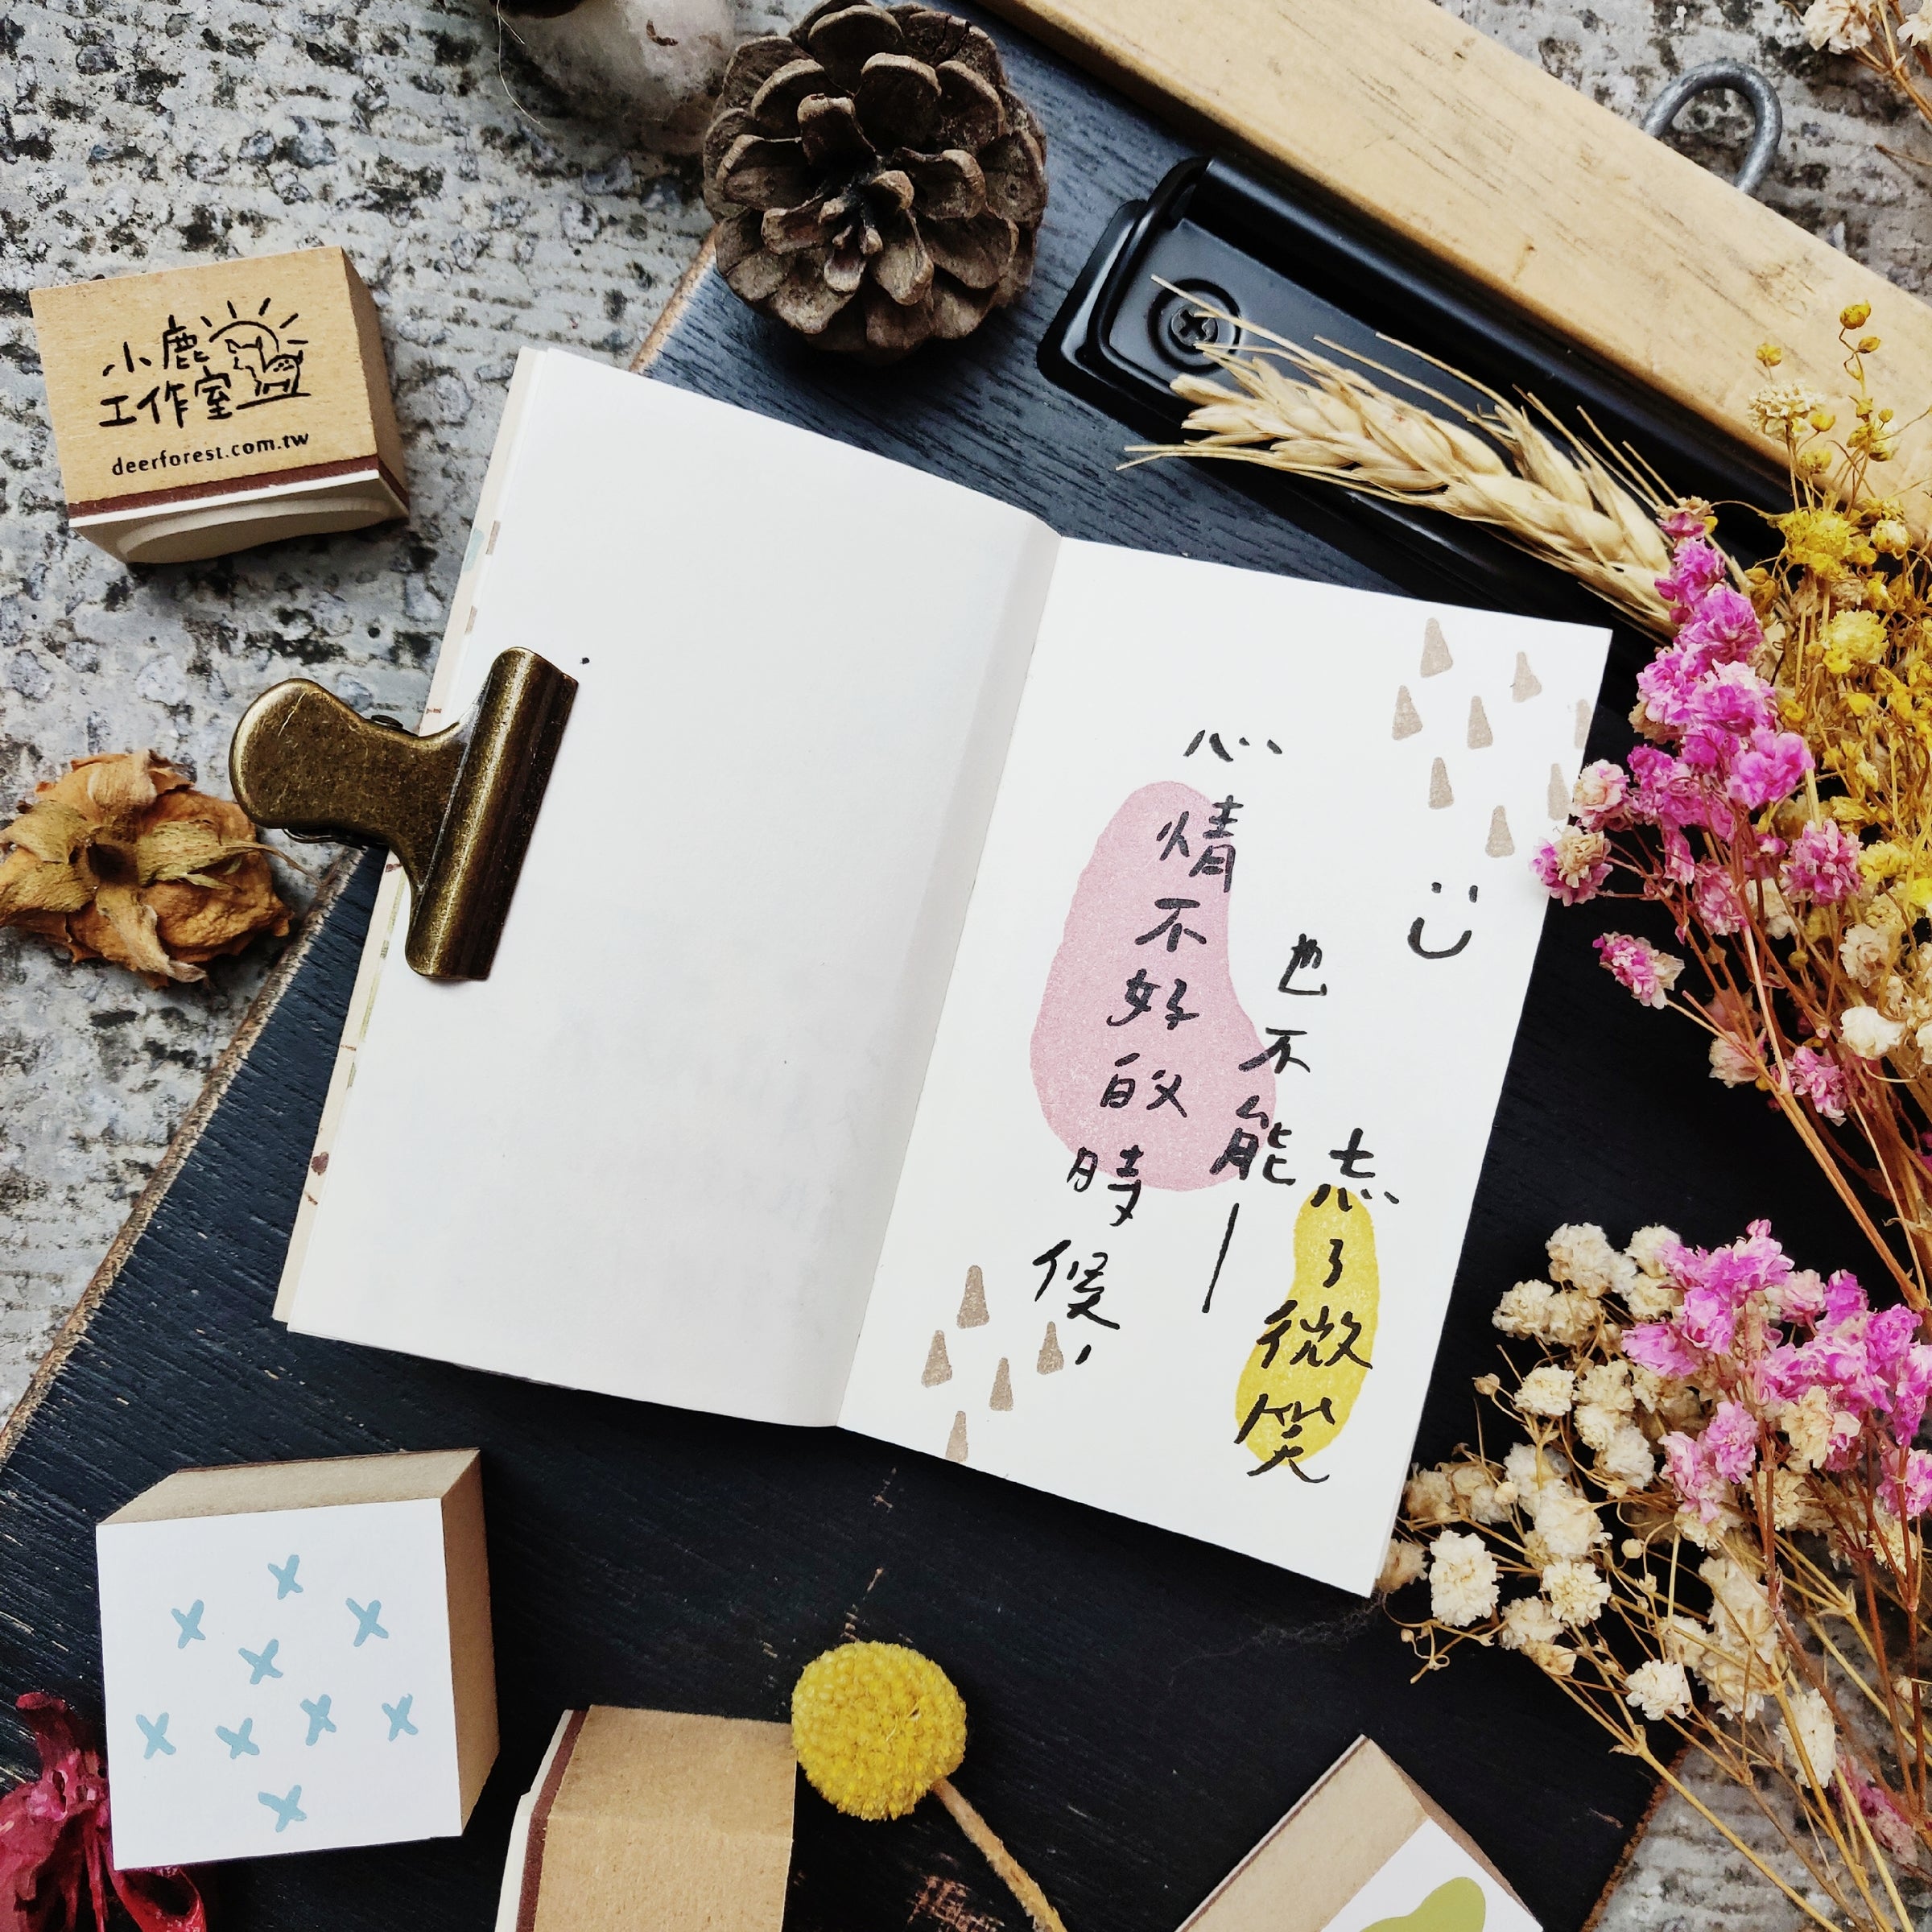 小鹿
工作室
deerforest.com.tw
心情不好的時候，
也不能—
忘了微笑